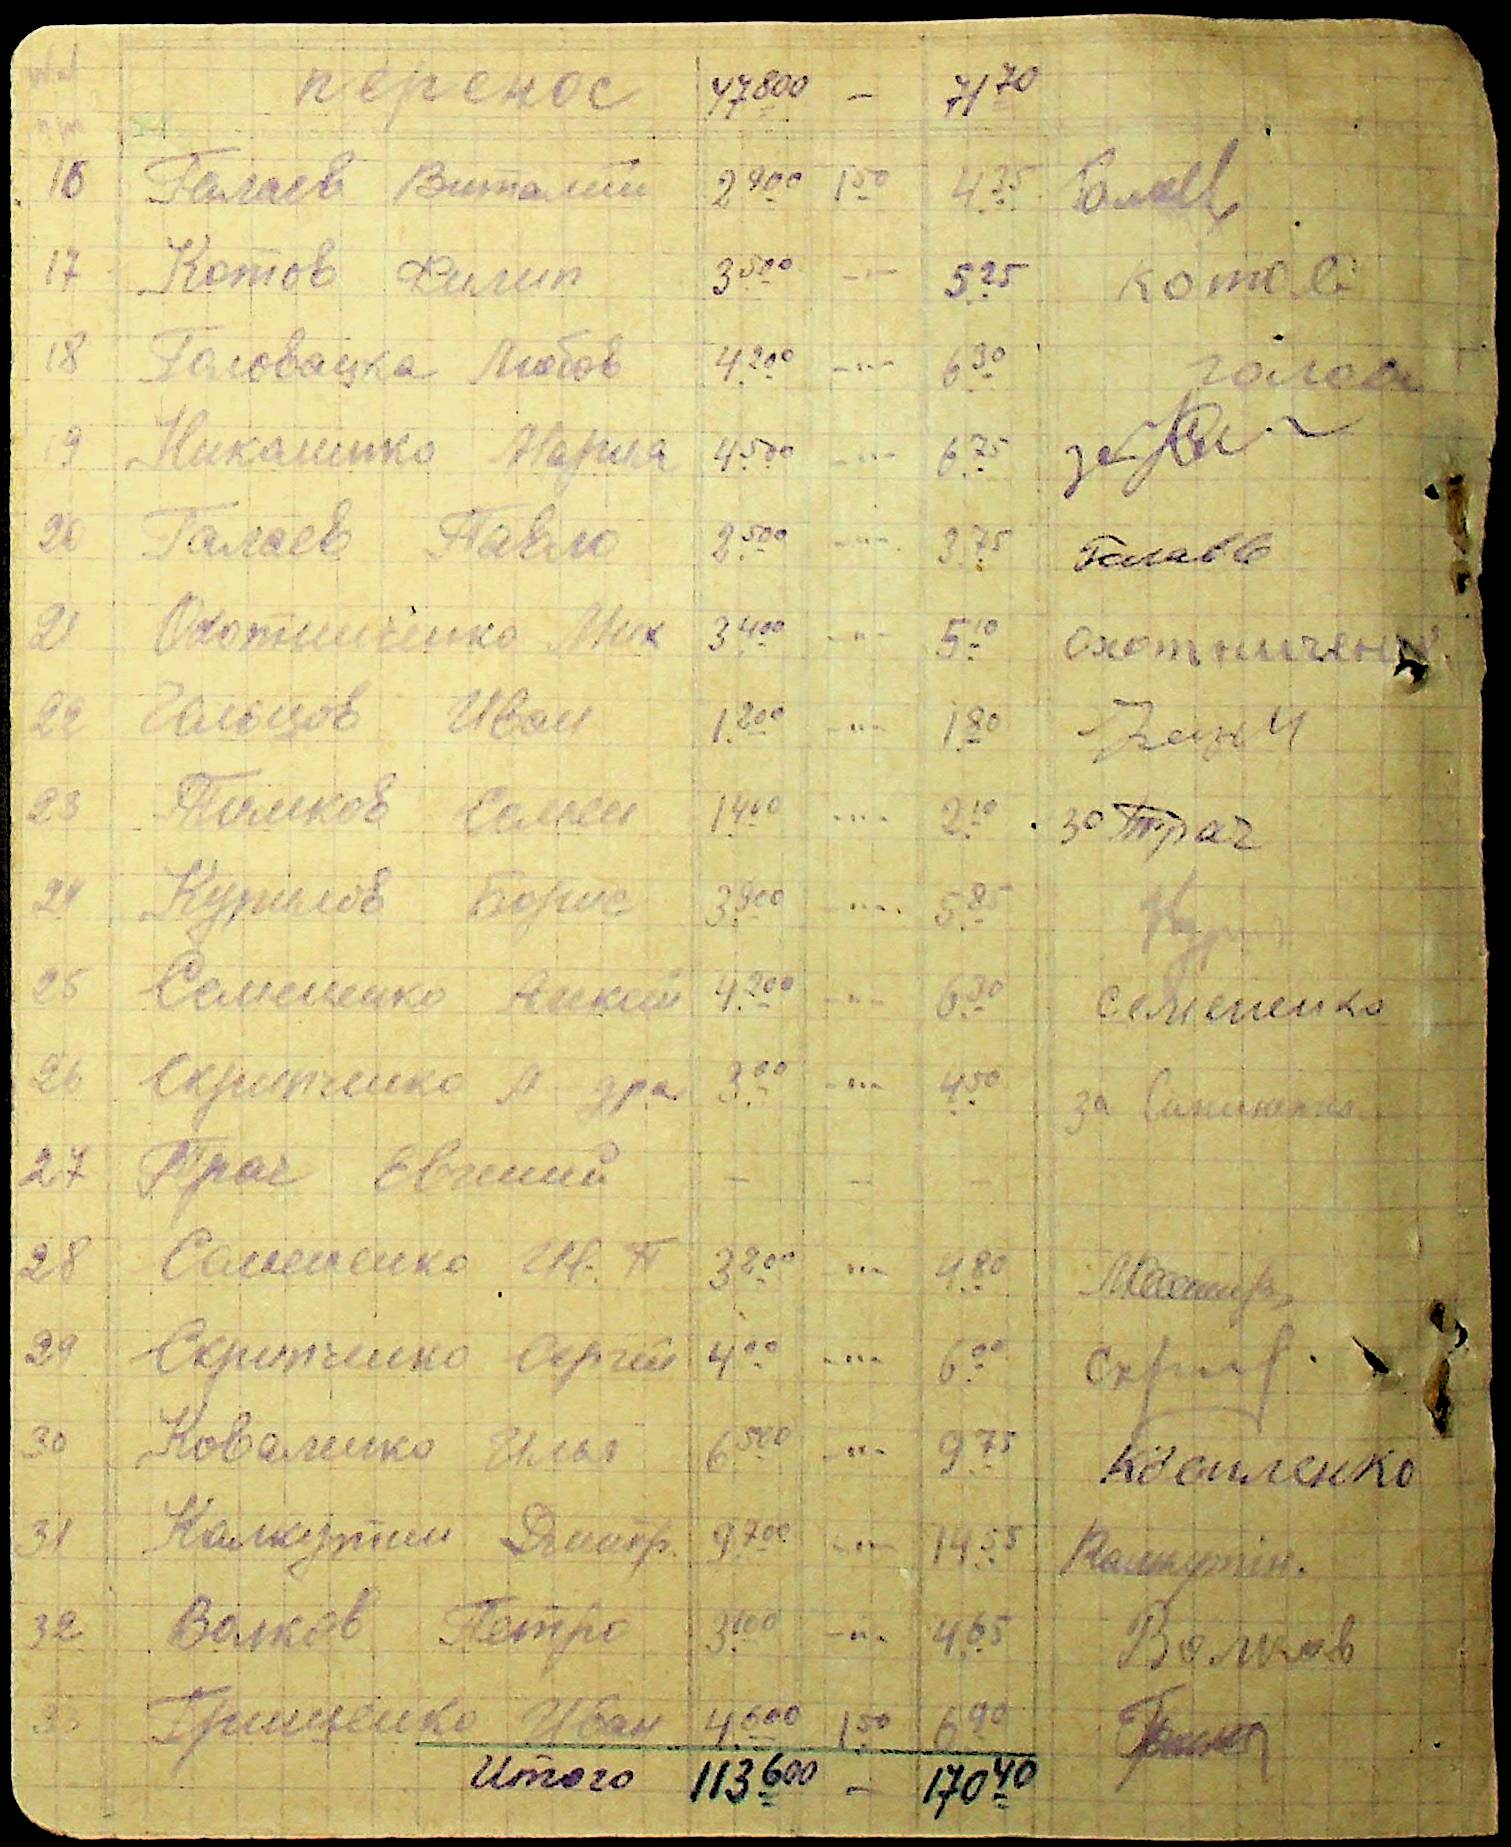 перенос 47800 – 71 70
16 Галаев Виталий 2 900 1 50 4 35 Галаев
17 Котов Филип 3 500 -"- 5 25 Котов
18 Головацка Любов 4 200 -"- 6 30 голов
19 Никаленко Мария 4 500 -"- 6 75 за
20 Галаев Павло 2 500 -"- 3 75 Галаев
21 Охотниченко Мих 3 400 -"- 5 10 Охотниченко
22 Гальцов Иван 1 200 -"- 1 80
23 Толмков Семен 1 400 -"- 2 10 за Трач
24 Курилов Борис 3 900 -"- 5 85 Кур
25 Семененко Алксей 4 200 -"- 6 30 Семененко
26 Скрипченко А др. 3 00 -"- 4 50 за
27 Трач Евгений – – –
28 Семененко И. П 3 200 -"- 4 80
29 Скрипченко Сергей 4 00 -"- 6 00 Скрип
30 Коваленко Илья 6 500 -"- 9 75 Коваленко
31 Калкутин Дмитр. 9 700 -"- 14 55 Калкутін.
32 Волков Петро 3 100 -"- 4 65 Волков
33 Грищенко Иван 4 600 1 50 6 90
Итого 113 600 – 170 40